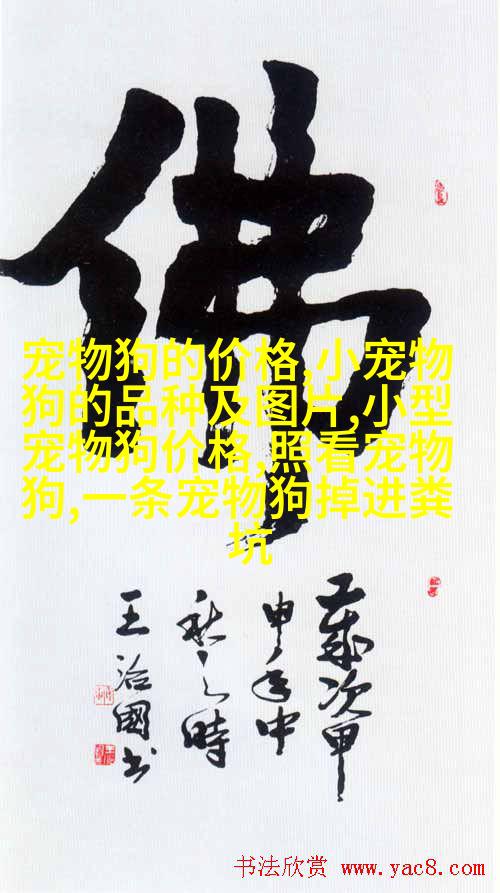 佛
宠物狗的价格,小宠物
狗的品种及图片,小型
宠物狗价格,照看宠物
狗,一条宠物狗掉进粪
坑
岁次甲
申年中
秋之时
王治国书
书法欣赏 www.yac8.com